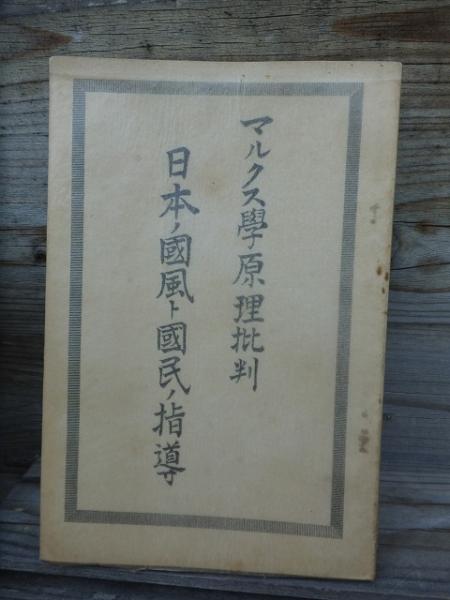 マルクス學原理批判
日本ノ國風ト國民ノ指導